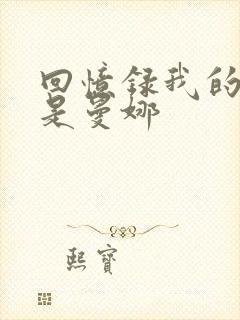 回憶錄我的
是曼娜
熙寶